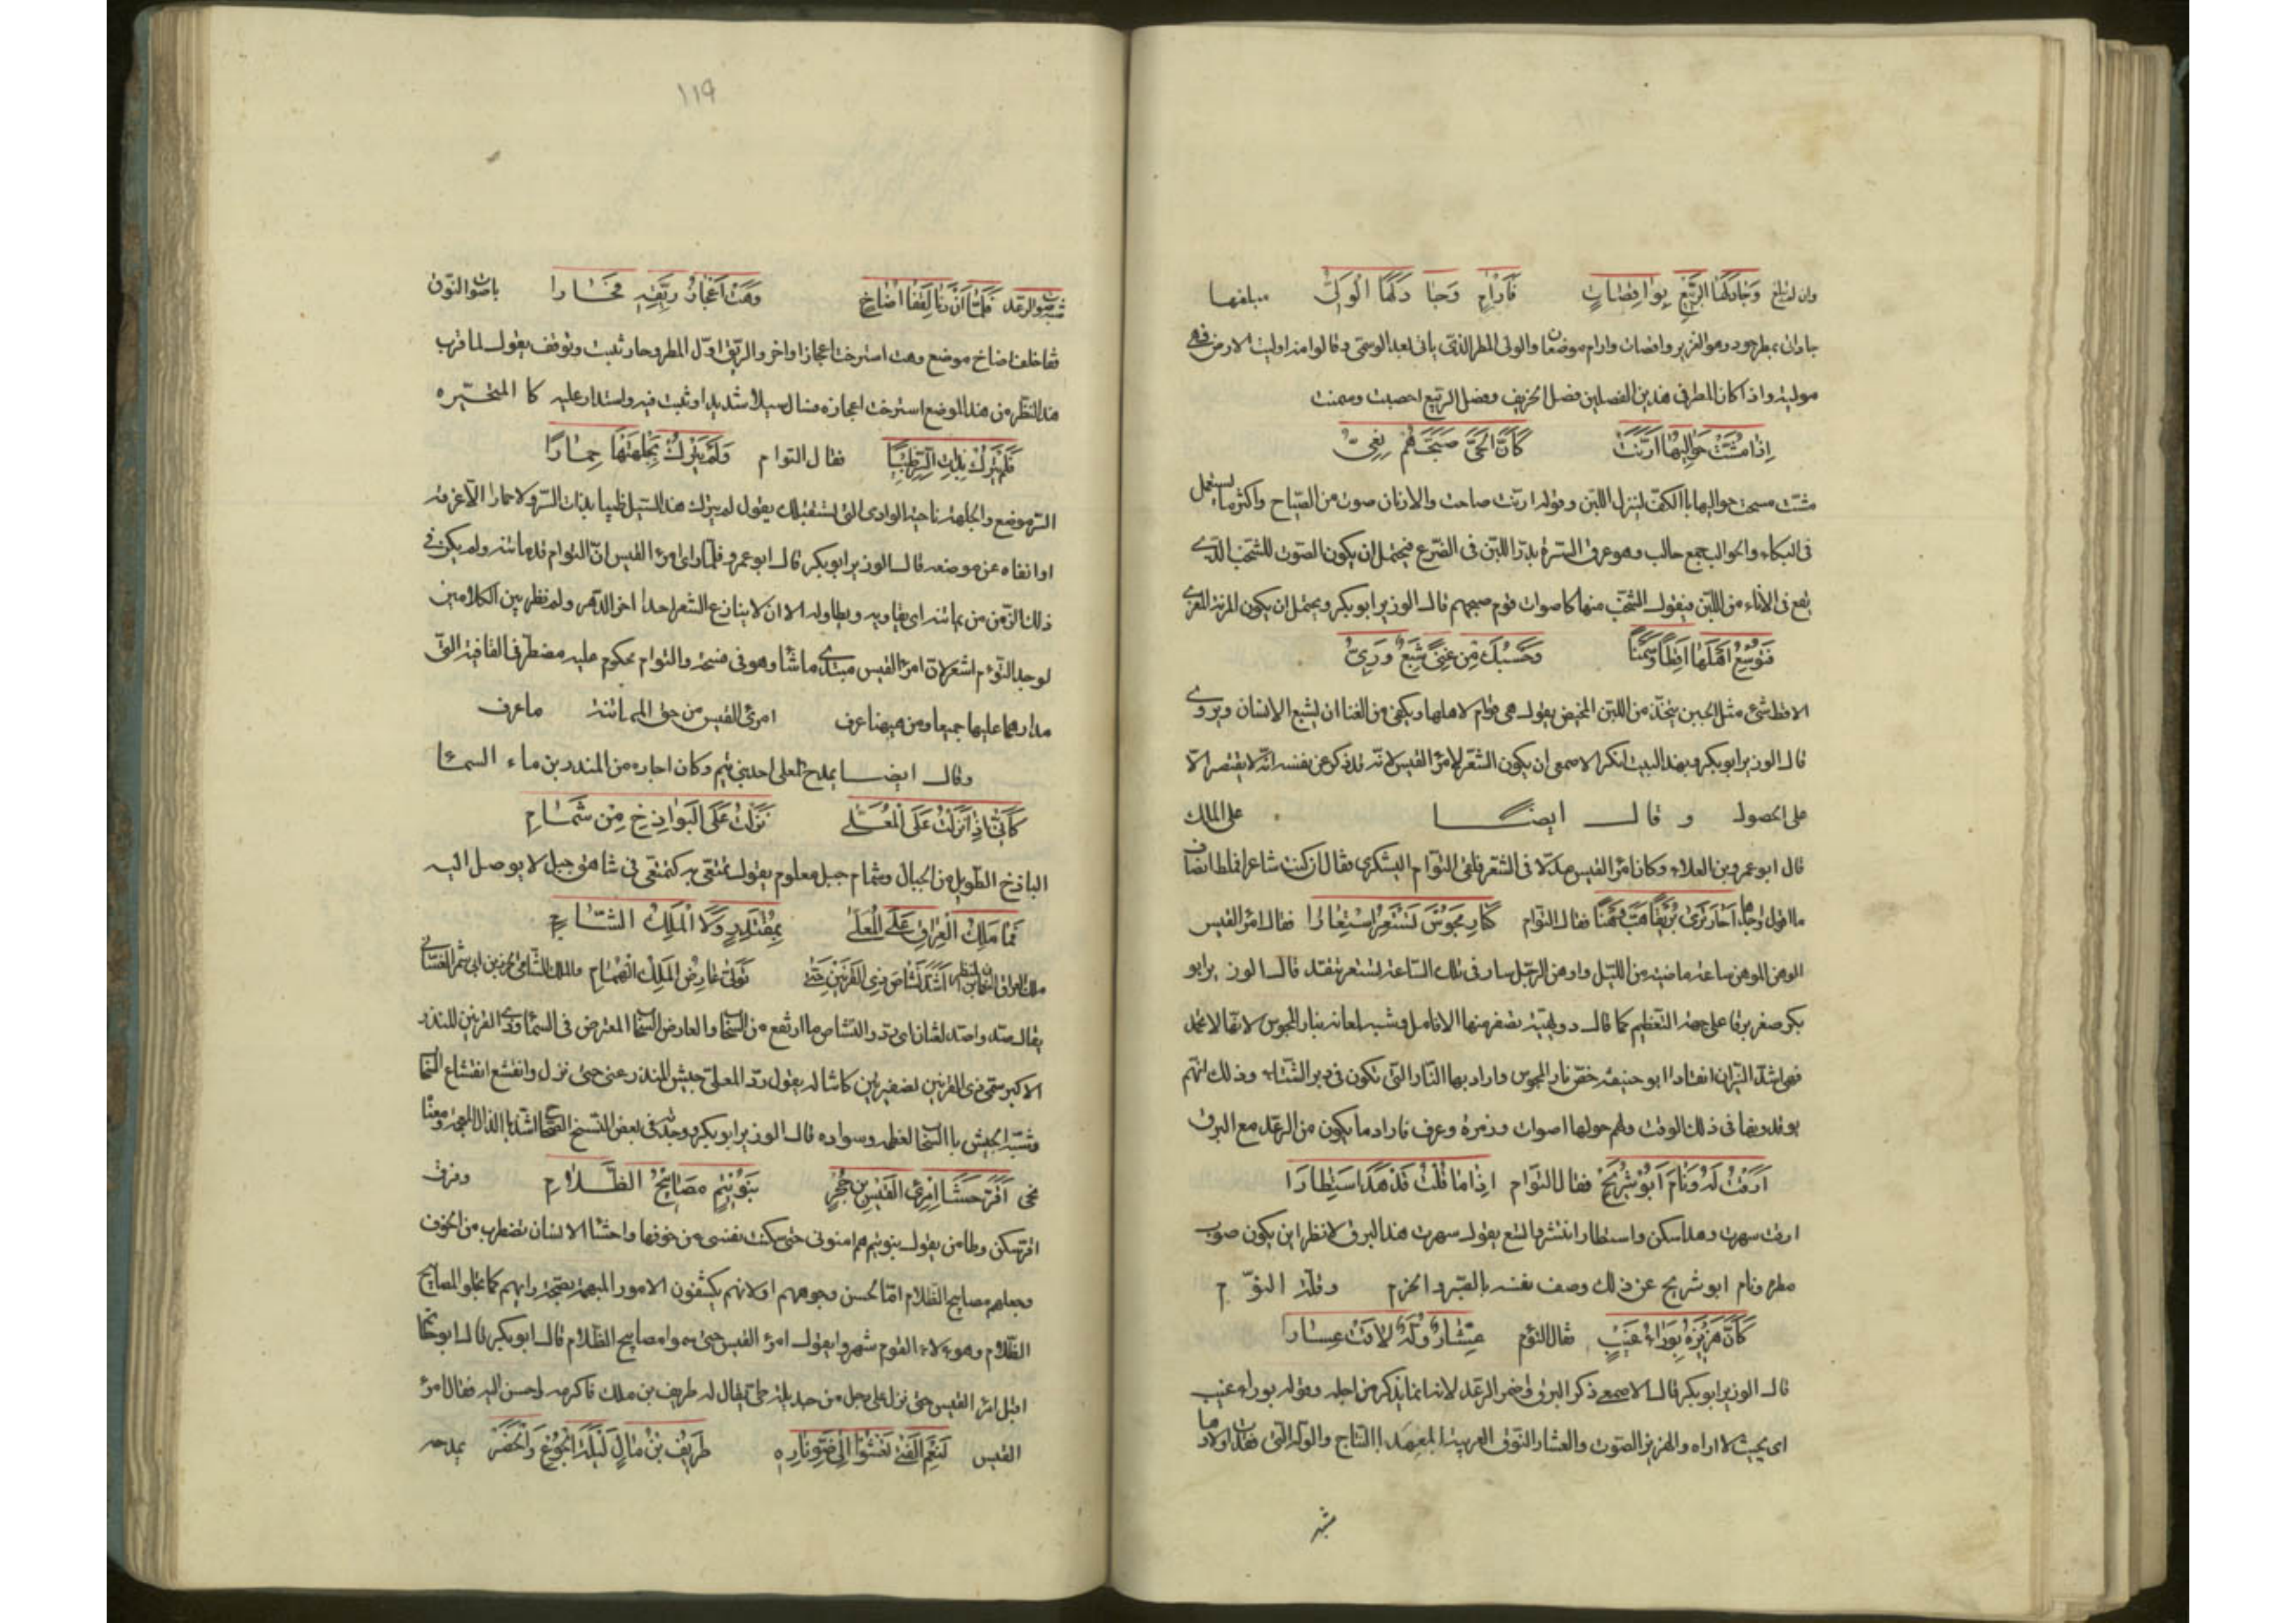 وجاد لها الربيع بواقصات فآرام وجاد لها الولي
جادان بمطر جود وهو الغزير واقصات وارام موضعان والولي المطر الذي ياتي بعد الوسمي وقالوا منه اوليت الارض فهي
مولية واذا كان المطر في هذين الفصلين فصل الخريف وفصل الربيع اخصبت وسمنت
اذا مشت حوالبها ارنت كأن الحي صبحهم نعي
مشت مسحت حوالبها باالكف لينزل اللبن وقوله ارنت صاحت والارنان صوت من الصياح واكثر ما يستعمل
في البكاء والحوالب جمع حالب وهو عرق السرة يدر اللبن في الضرع فيحتمل ان يكون الصوت للشخب الذي
يقع في الاناء من اللبن فيقول الشخب منها كاصوات قوم صبحهم قال الوزير ابو بكر ويحتمل ان يكون
فتوسع اهلها اقطا وسمنا وحسبك من غنى شبع وري
الاقط شئ مثل الجبن يتخذ من اللبن المخيض يقول هي قوام لاهلها ويكفي من الغنا ان يشبع الانسان ويروي
قال الوزير ابو بكر وبهذا البيت انكر الاصمعي ان يكون الشعر لامرئ القيس لانه قد ذكر عن نفسه انه لا يقتصر الا
على الحصول وقال ايضا على الملك
قال ابو عمرو بن العلاء وكان امرؤ القيس مدلا في الشعر فلقي التوام اليشكري فقال ان كنت شاعرا فملط انصاف
ما اقول واجزها احار ترى بريقا هب وهنا فقال التوام كنار مجوس تستعر استعارا فقال امرؤ القيس
الوهن الموهن ساعة ماضية من الليل واوهن الرجل سار في تلك الساعة تستعر تتقد قال الوزير ابو
بكر صغر برقا على جهة التعظيم كما قال دويهية تصفر منها الانامل وشبه لمعانه بنار المجوس لانها لا تخمد
فهي اشد النيران اتقادا ابو حنيفة خص نار المجوس واراد بها النار التي تكون في دير الشتاء وذلك انهم
يوقدونها في ذلك الوقت ولهم حولها اصوات وزمزمة وعزف فاراد ما يكون من الرعد مع البرق
ارقت له ونام ابو شريح فقال التوام اذا ما قلت قد هدا استطارا
ارقت سهرت وهدا سكن واستطار انتشر واتسع يقول سهرت هذا البرق لانظر اين يكون صوب
مطره ونام ابو شريح عن ذلك وصف نفسه بالصبر والحزم وقلة النوم
كأن هزيزه بوراء غيب فقال التوم عشار وله لاقت عشارا
قال الوزير ابو بكر قال الاصمعي ذكر البرق واضمر الرعد لانه انما يذكر من اجله وقوله بوراء غيب
اي بحيث لا اراه والهزيز الصوت والعشار النوق القريبة العهد باالنتاج والوله التي فقدت اولادها
شبه
١١٩
شبه صوت الرعد فلما ان دنا لقفا اضاخ وهت اعجاز ريقه فحارا باصوات النوق
قفا خلف اضاخ موضع وهت استرخت اعجاز اواخر والريق اول المطر وحار ثبت وتوقف يقول لما قرب
هذا المطر من هذا الموضع استرخت اعجازه فسال سيلا شديدا وثبت فيه واستدار عليه كا المتحيره
فلم يترك بذات السر ظبيا فقال التوام ولم يترك بجلهتها حمارا
السر موضع والجلهة ناحية الوادي التي تستقبلك يقول لم يترك هذا السيل ظبيا بذات السر ولا حمارا الا غرقه
او انفاه عن موضعه قال الوزير ابو بكر قال ابو عمرو فلما راى امرؤ القيس ان التوام قد ماتنه ولم يكن في
ذلك الزمن من يماتنه اي يقاويه ويطاوله الا ان لا ينازع الشعر احدا اخر الدهر ولو نظر بين الكلامين
لوجد التوم اشعر لان امرؤ القيس مبتدئ ما شا وهو في فسحة والتوام محكوم عليه مضطر في القافية التي
مدارهما عليها جميعا ومن هيهنا عرف امرئ القيس من حق المماتنة ما عرف
وقال ايضا يمدح المعلى احد بني تيم وكان اجاره من المنذر بن ماء السما
كأني اذ نزلت على المعلى نزلت على البواذخ من شمام
الباذخ الطويل من الجبال وشمام جبل معلوم يقول تمنعي به كتمنعي في شاهق جبل لا يوصل اليه
فما ملك العراق على المعلى بمقتدر ولا الملك الشآمي
اصد نشاص ذي القرنين حتى تولى عارض الملك الهمام
يقال صد واصد لغتان اي رد والنشاص ما ارتفع من السحاب والعارض السحاب المعترض في السما وذي القرنين المنذر
الاكبر سمي ذي القرنين لضفيرتين كانتا له يقول رد المعلى جيش المنذر عني حتى نزل وانقشع انقشاع الغمام
وشبه الجيش باالسحاب لعظمه وسواده قال الوزير ابو بكر ووجدته في بعض النسخ اشذ باالذال المعجمة ومعناه
نحى اقر حشا امرئ القيس بن حجر بنو تيم مصابيح الظلام وفرق
اقر سكن وطامن يقول بنو تيم هم امنوني حتى سكنت نفسي من خوفها واحشا الانسان تضطرب من الخوف
وجعلهم مصابيح الظلام اما لحسن وجوههم او لانهم يكشفون الامور المبهمة بصحة رايهم كما تجلو المصابيح
الظلام وهوءلاء القوم شهروا بقول امرؤ القيس حتى سموا مصابيح الظلام قال ابو بكر قال ابو حاتم
اقبل امرؤ القيس حتى نزل على رجل من جديلة طي يقال له طريف بن ملك فاكرمه واحسن اليه فقال امرؤ
القيس لنعم الفتى تعشوا الى ضوء ناره طريف بن مال ليلة الجوع والخصر يمدحه